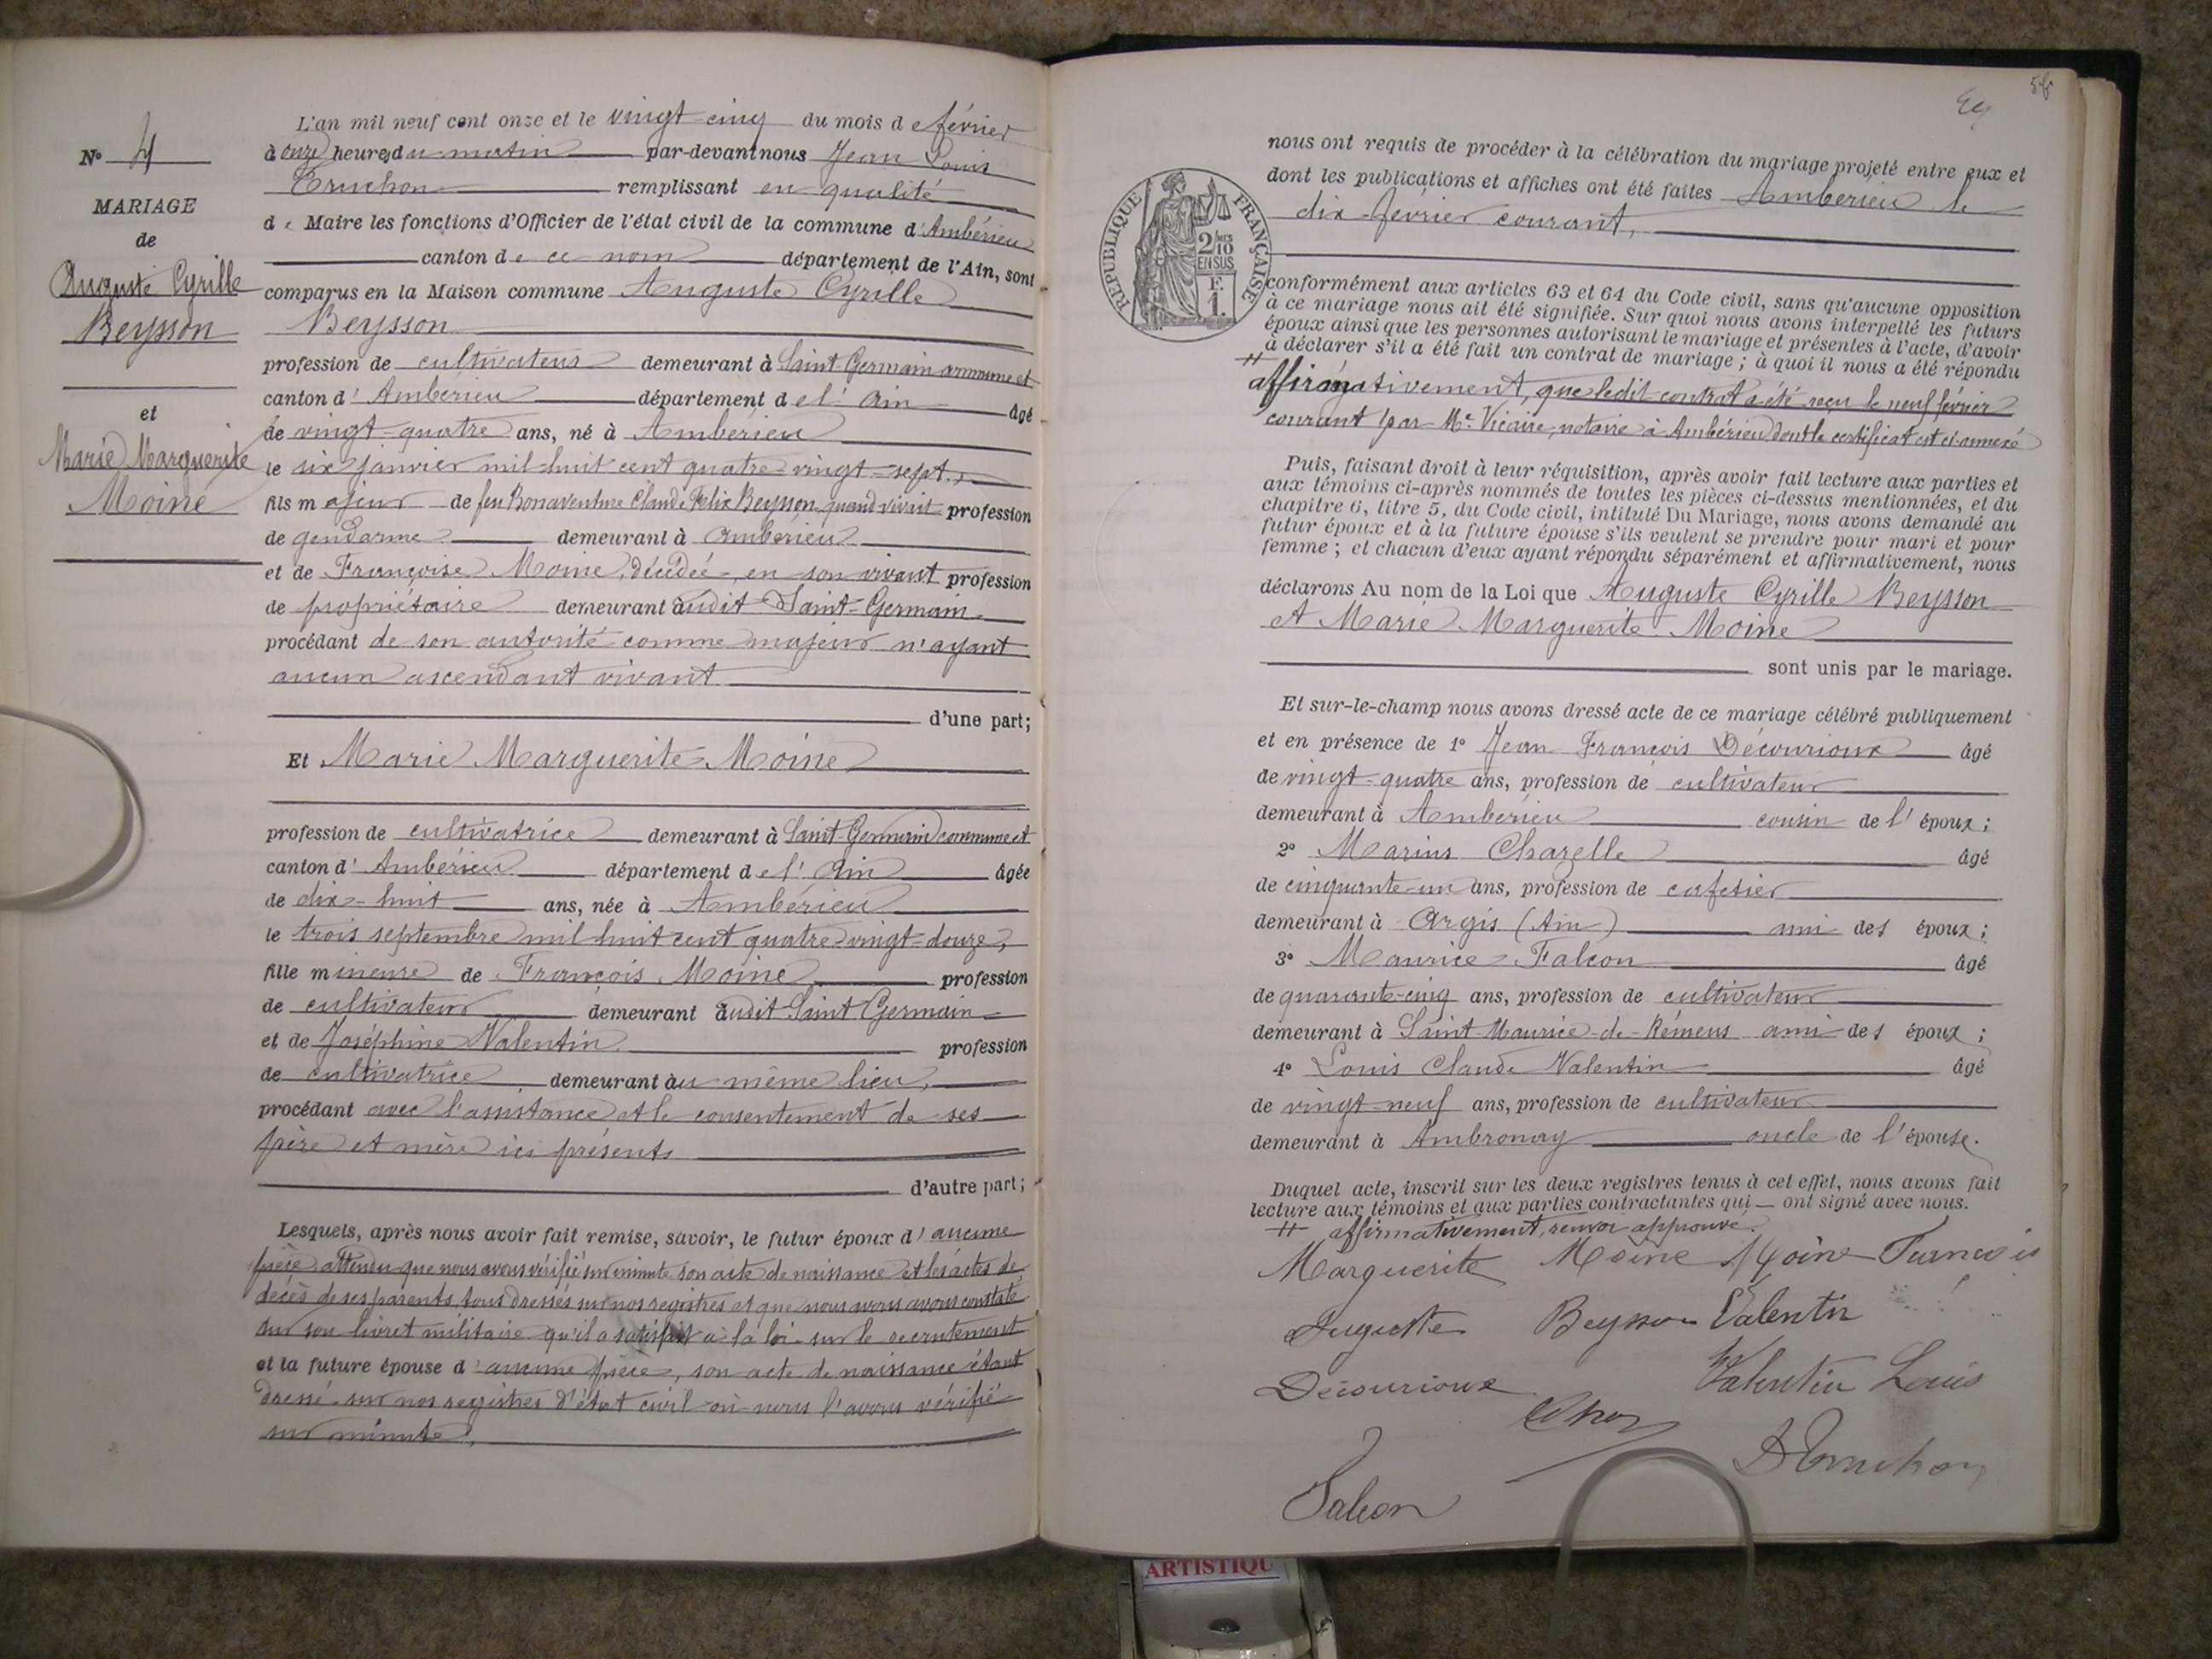 N° 4
MARIAGE
de
Auguste Cyrille
Beysson
et
Marie Marguerite
Moine
L'an mil neuf cent onze et le vingt-cinq du mois de février
à onze heures du matin par-devant nous Jean Louis
Truchon remplissant en qualité
de Maire les fonctions d'Officier de l'état civil de la commune d'Ambérieu
canton de ce nom département de l'Ain, sont
comparus en la Maison commune Auguste Cyrille
Beysson
profession de cultivateur demeurant à Saint Germain commune et
canton d'Ambérieu département de l'Ain âgé
de vingt-quatre ans, né à Ambérieu
le six janvier mil huit cent quatre vingt-sept,
fils majeur de feu Bonaventure Claude Félix Beysson, quand vivait profession
de gendarme demeurant à Ambérieu
et de Françoise Moine, décédée, en son vivant profession
de propriétaire demeurant audit Saint-Germain
procédant de son autorité comme majeur n'ayant
aucun ascendant vivant
d'une part;
Et Marie Marguerite Moine
profession de cultivatrice demeurant à Saint-Germain commune et
canton d'Ambérieu département de l'Ain âgée
de dix-huit ans, née à Ambérieu
le trois septembre mil huit cent quatre vingt-douze,
fille mineure de François Moine profession
de cultivateur demeurant audit Saint Germain
et de Joséphine Valentin profession
de cultivatrice demeurant au même lieu,
procédant avec l'assistance et le consentement de ses
père et mère ici présents
d'autre part;
Lesquels, après nous avoir fait remise, savoir, le futur époux d'aucune
pièce attendu que nous avons vérifié sur minute son acte de naissance et les actes de
décès de ses parents tous dressés sur nos registres et que nous avons avons constaté
sur son livret militaire qu'il a satisfait à la loi sur le recrutement
et la future épouse d'aucune pièce, son acte de naissance étant
dressé sur nos registres d'état civil où nous l'avons vérifié
sur minute,
RÉPUBLIQUE FRANÇAISE
2/10
EN SUS
F.
1.
nous ont requis de procéder à la célébration du mariage projeté entre eux et
dont les publications et affiches ont été faites Ambérieu le
dix février courant,
conformément aux articles 63 et 64 du Code civil, sans qu'aucune opposition
à ce mariage nous ait été signifiée. Sur quoi nous avons interpellé les futurs
époux ainsi que les personnes autorisant le mariage et présentes à l'acte, d'avoir
à déclarer s'il a été fait un contrat de mariage; à quoi il nous a été répondu
affirmativement, que ledit contrat a été reçu le neuf février
courant par Me Vicaire, notaire à Ambérieu dont le certificat est ci-annexé
Puis, faisant droit à leur réquisition, après avoir fait lecture aux parties et
aux témoins ci-après nommés de toutes les pièces ci-dessus mentionnées, et du
chapitre 6, titre 5, du Code civil, intitulé Du Mariage, nous avons demandé au
futur époux et à la future épouse s'ils veulent se prendre pour mari et pour
femme; et chacun d'eux ayant répondu séparément et affirmativement, nous
déclarons Au nom de la Loi que Auguste Cyrille Beysson
et Marie Marguerite Moine
sont unis par le mariage.
Et sur-le-champ nous avons dressé acte de ce mariage célébré publiquement
et en présence de 1° Jean François Décourioux âgé
de vingt-quatre ans, profession de cultivateur
demeurant à Ambérieu cousin de l'époux;
2° Marius Chazelle âgé
de cinquante-un ans, profession de cafetier
demeurant à Argis (Ain) ami des époux;
3° Maurice Falcon âgé
de quarante-cinq ans, profession de cultivateur
demeurant à Saint-Maurice-de-Rémens ami des époux;
4° Louis Claude Valentin âgé
de vingt-neuf ans, profession de cultivateur
demeurant à Ambronay oncle de l'épouse.
Duquel acte, inscrit sur les deux registres tenus à cet effet, nous avons fait
lecture aux témoins et aux parties contractantes qui ont signé avec nous.
affirmativement, renvoi approuvé.
Marguerite Moine Moine Francois
Auguste Beysson Valentin
Décourioux Valentin Louis
Truchon
Falcon
ARTISTIQU